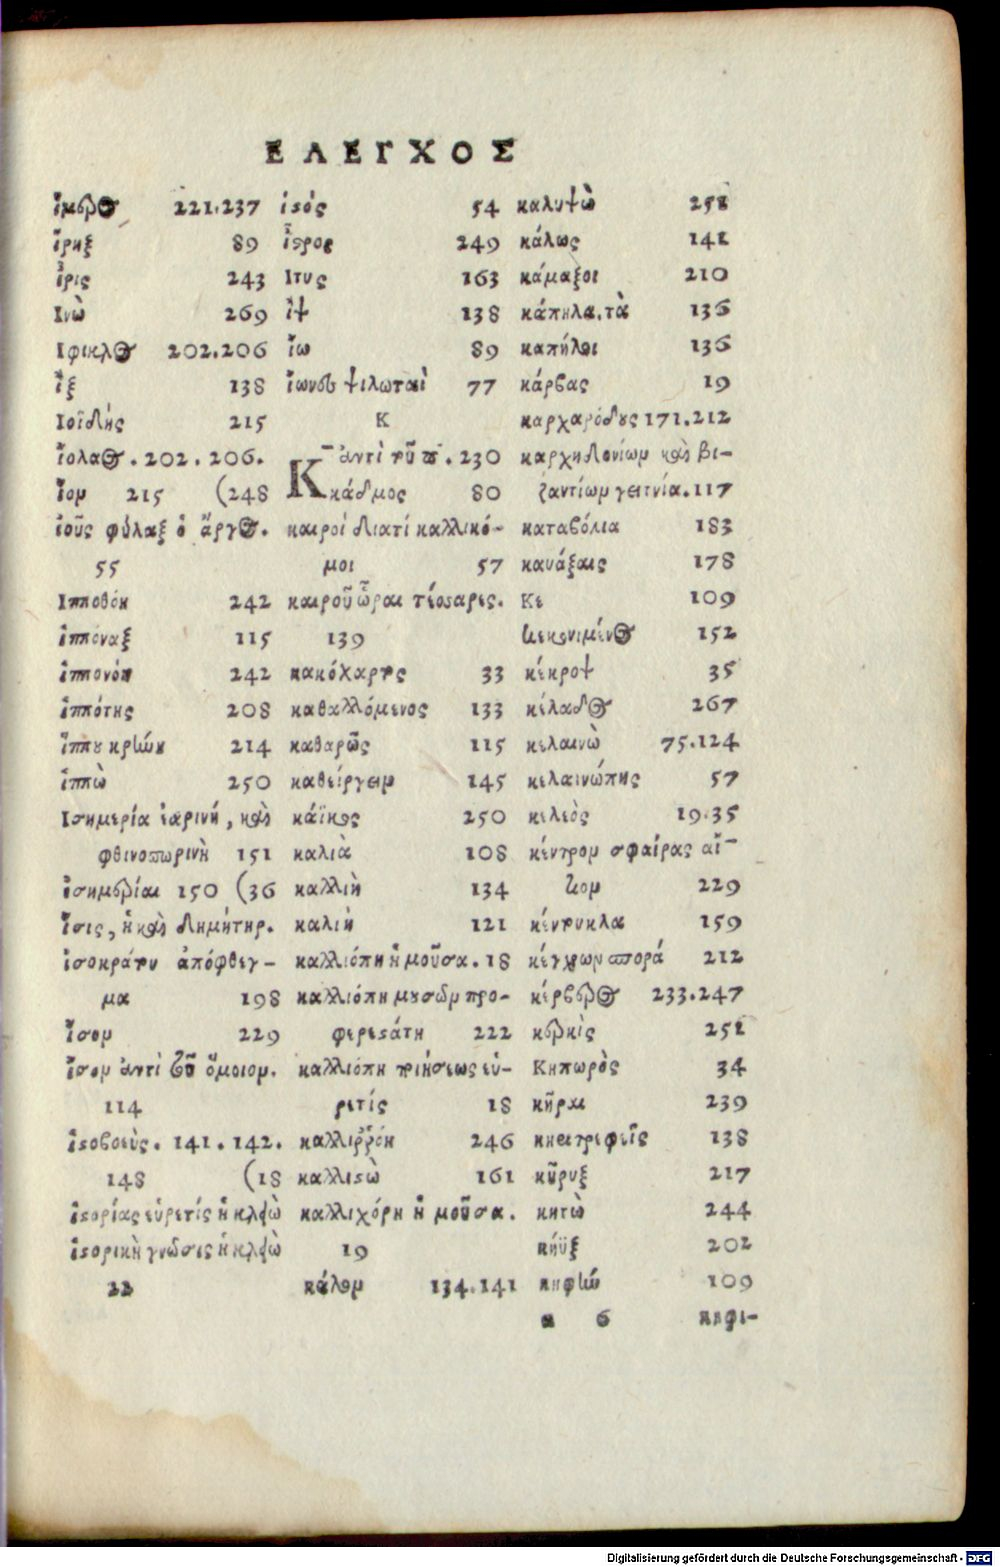 ΕΛΕΓΧΟΣ
ἴμβρος 221.237
ἴρηξ 89
ἶρις 243
Ινὼ 269
Ιφικλος 202.206
ἲξ 138
Ιοϊδὴς 215
ἴολαος. 202. 206.
ἴον 215 (248
ἰοῦς φύλαξ ὁ ἄργος.
55
Ιπποθόη 242
ἱππόναξ 115
ἱππονόη 242
ἱππότης 208
ἵππου κρήνη 214
ἱππὼ 250
Ισημερία ἐαρινή, καὶ
φθινοπωρινὴ 151
ἰσημερίαι 150 (36
ἶσις, ἡ καὶ δημήτηρ.
ἰσοκράτου ἀπόφθεγ-
μα 198
ἴσον 229
ἴσον ἀντὶ τοῦ ὅμοιον.
114
ἱστοβοεὺς. 141. 142.
148 (18
ἱστορίας εὑρετίς ἡ κλειὼ
ἱστορικὴ γνῶσις ἡ κλειὼ
22
ἱστός 54
ἴστρος 249
Ιτυς 163
ἲψ 138
ἴω 89
ἴωνες ψιλωταὶ 77
Κ
Κ ἀντὶ τοῦ π. 230
κάδμος 80
καιροί διατί καλλικό-
μοι 57
καιροῦ ὧραι τέσσαρες.
139
κακόχαρτος 33
καθαλλόμενος 133
καθαρῶς 115
καθείργειν 145
κάϊκος 250
καλιὰ 108
καλλιὴ 134
καλιὴ 121
καλλιόπη ἡ μοῦσα. 18
καλλιόπη μουσῶν προ-
φερεστάτη 222
καλλιόπη ποιήσεως εὑ-
ρετίς 18
καλλιῤῥόη 246
καλλιστὼ 161
καλλιχόρη ἡ μοῦσα.
19
κᾶλον 134.141
καλυψὼ 251
κάλως 141
κάμαξοι 210
κάπηλα, τὰ 136
καπήλοι 136
κάρβας 19
καρχαρόδους 171.212
καρχηδονίων καὶ βι-
ζαντίων γειτνία. 117
καταβόλια 183
καυάξαις 178
Κε 109
κεκονιμένος 152
κέκροψ 35
κέλαδος 267
κελαινὼ 75.124
κελαινώπης 57
κελεὸς 19.35
κέντρον σφαίρας αἴ-
τιον 229
κέντυκλα 159
κέγχρων σπορά 212
κέρβερος 233.247
κερκὶς 251
Κηπωρὸς 34
κῆραι 239
κηειτρεφεῖς 138
κῆρυξ 217
κητὼ 244
κήϋξ 202
κηφὴν 109
α 6 κηφι-
Digitalisierung gefördert durch die Deutsche Forschungsgemeinschaft - DFG